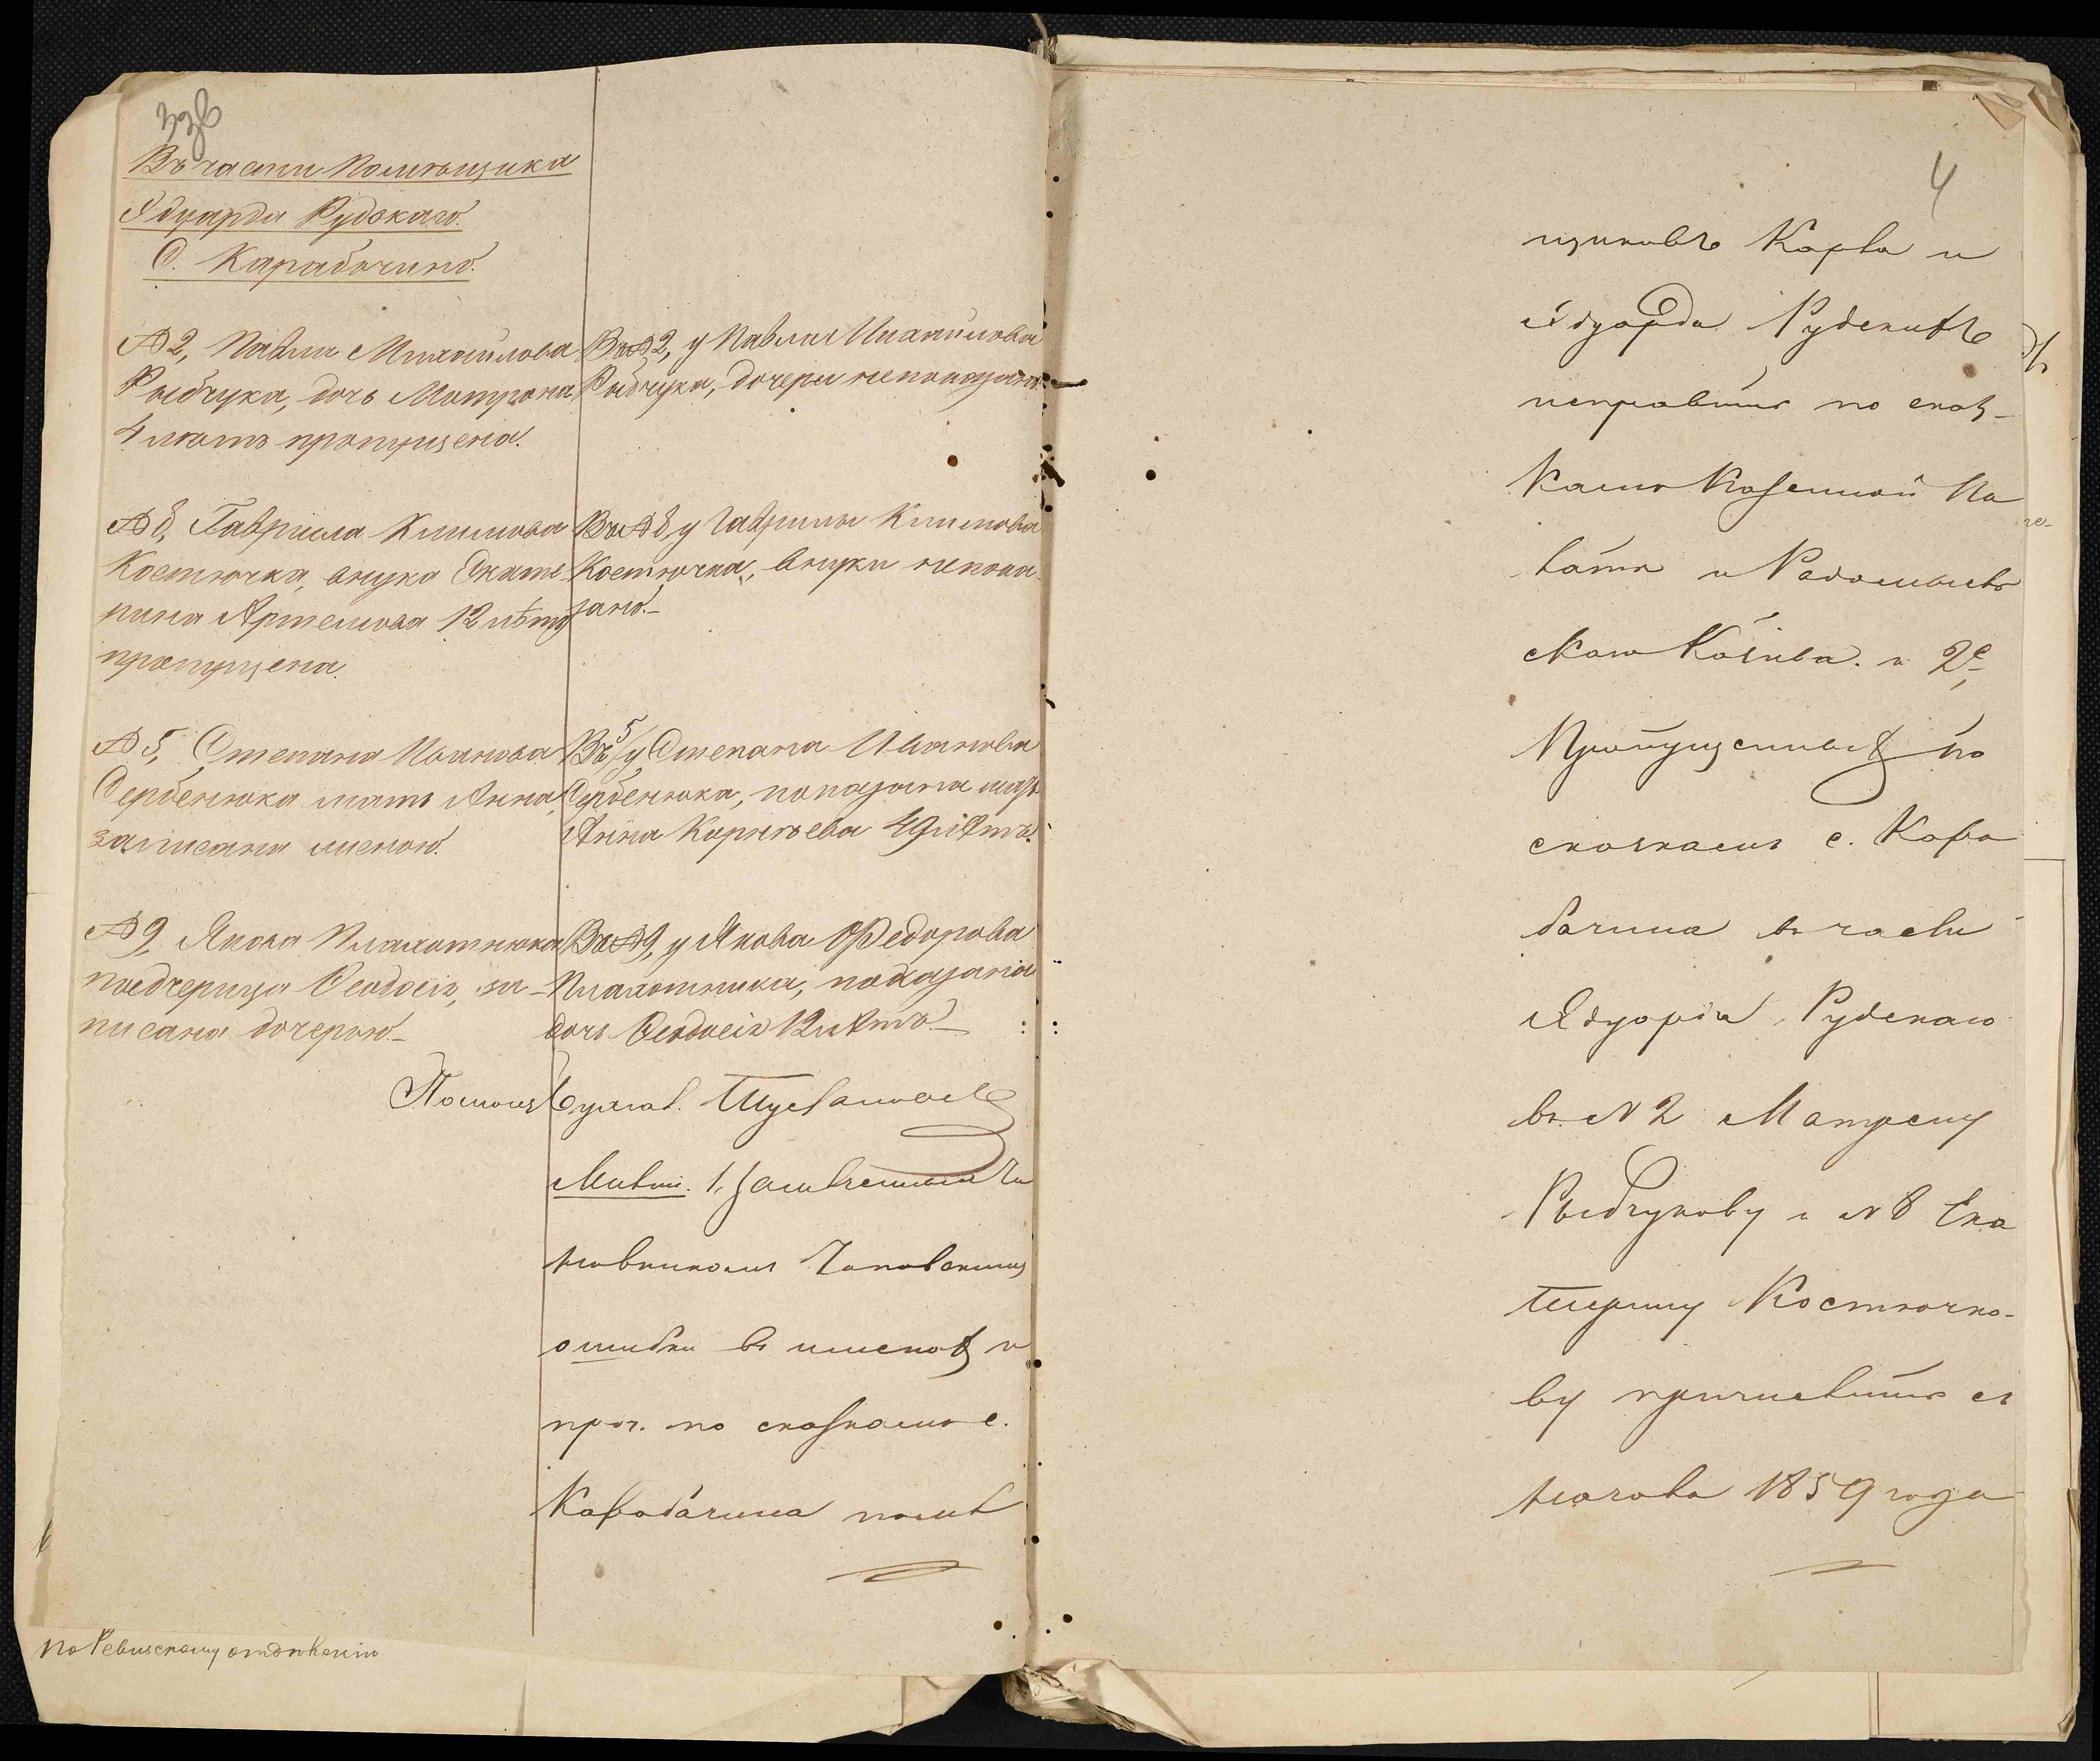 Въ части Помѣщика
Эдуарда Рудскаго.
С. Карабачино.
№ 2, Павла Михайлова
Рыбчука, дочь Матрона
4 лѣтъ пропущена.
№ 8, Гаврила Климова
Костючка, внука Екате-
рина Артемова 12 лѣтъ
пропущена.
№ 5, Степана Иванова
Сербенюка мать Анна,
записана женою.
№ 9, Якова Плахотнюка
падчерица Феодосія, за-
писана дочерью.
Въ № 2, у Павла Михайлова
Рыбчука, дочери непоказано.
Въ № 8, у Гаврилы Климова
Костючка, внуки непока-
зано.
Въ 5, у Степана Иванова
Сербенюка, показана мать
Анна Корнѣева 49 лѣтъ.
Въ № 9, у Якова Федорова
Плахотника, показана
дочь Феодосія 12 лѣтъ.
Помощ Бухгал.
Мнѣніе. 1, Замѣченныя Чи
новникомъ
ошибки въ именахъ и
проч. по сказкамъ с.
Карабачина помѣ
По Ревизскому отдѣленію
4
щиковъ Карла и
Эдуарда Рудскихъ
исправить по сказ-
камъ Казенной Па
латы и Радомысль
скаго Казнач. и 2е,
Пропущенныхъ по
сказкамъ с. Кара
бачина въ части
Эдуарда Рудскаго
въ № 2 Матрену
Рыбчукову и № 8 Ека
терину Костючко-
ву причислить съ
начала 1859 года